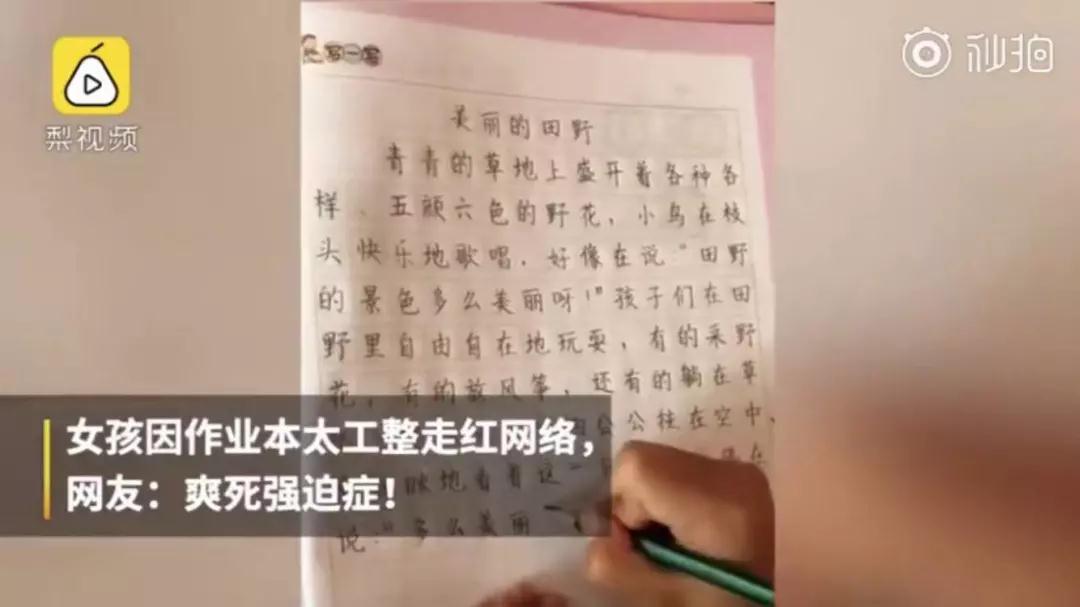 梨视频
秒拍
写一写
美丽的田野
青青的草地上盛开着各种各
样、五颜六色的野花，小鸟在枝
头快乐地歌唱，好像在说“田野
的景色多么美丽呀！”孩子们在田
野里自由自在地玩耍，有的采野
花，有的放风筝，还有的躺在草
公公挂在空中、
眯地看着这一
说：“多么美丽
女孩因作业本太工整走红网络，
网友：爽死强迫症！